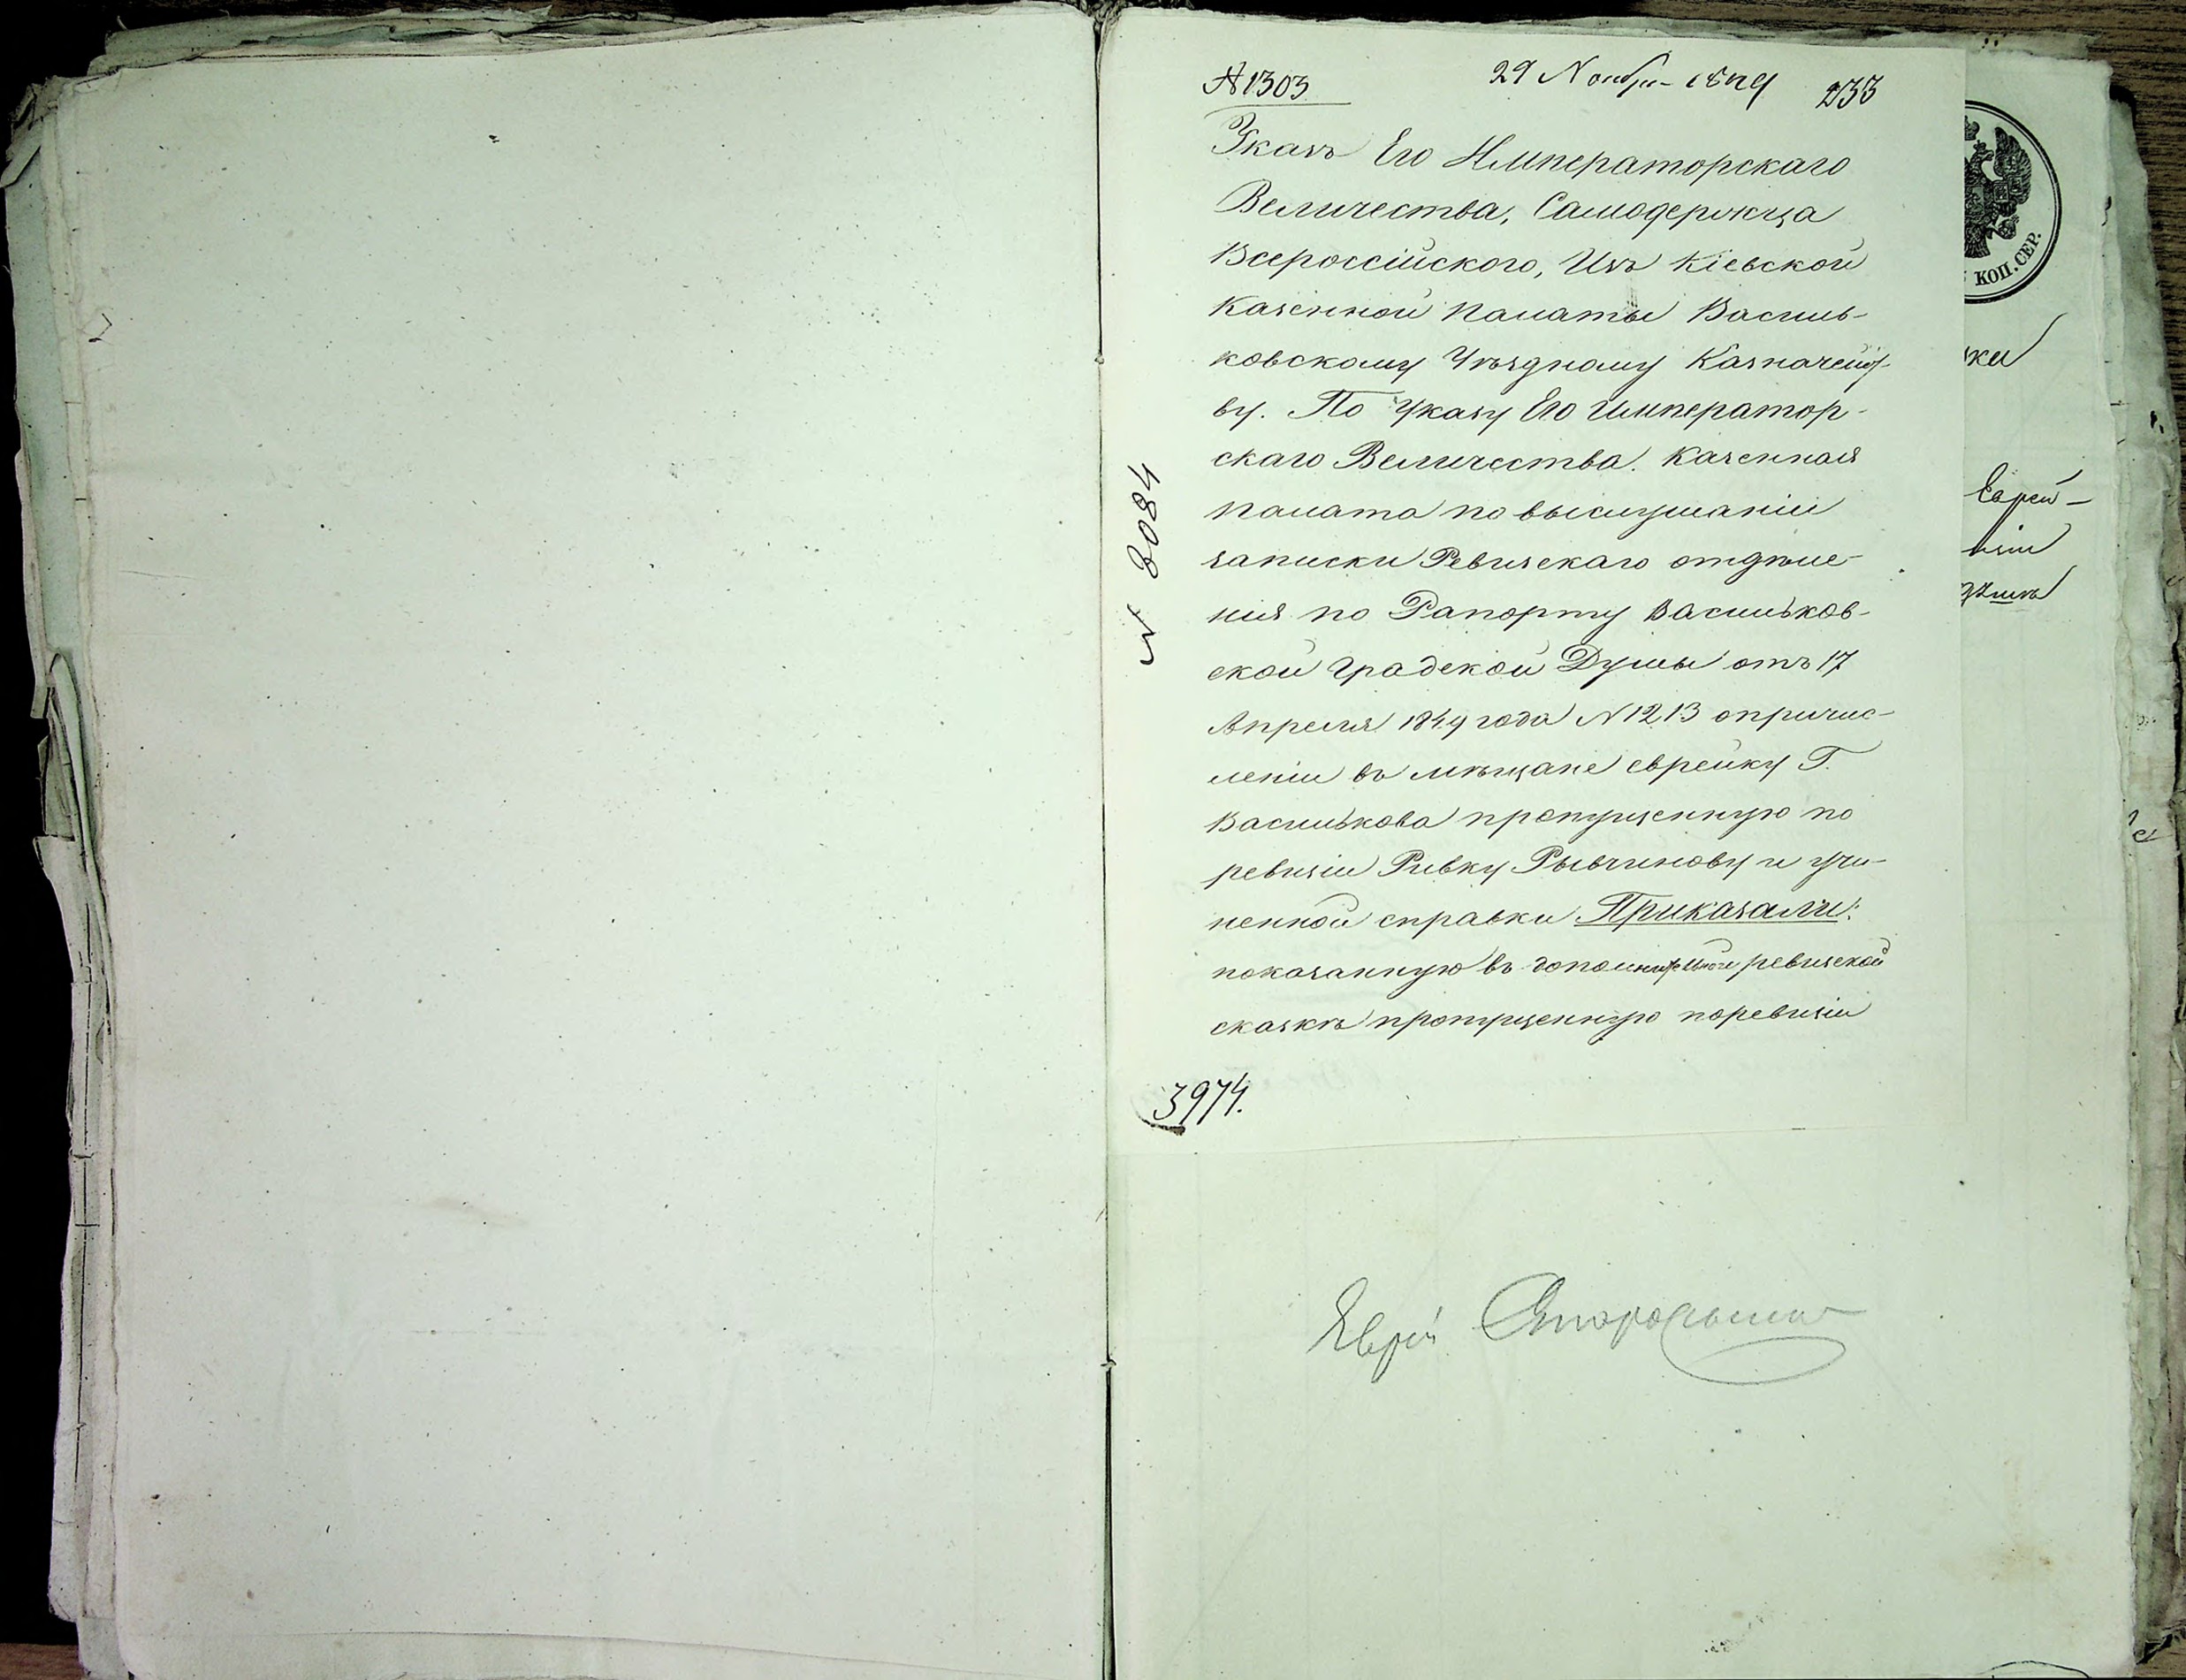 № 1303 29 Ноября 1849 233
Указъ Его Императорскаго
Величества, Самодержца
Всероссійского, Изъ Кіевской
Казенной Палаты Василь-
ковскому Уѣздному Казначейст-
ву. По Указу Его Император-
скаго Величества. Казенная
Палата по выслушаніи
записки Ревизскаго отдѣле-
нія по Рапорту Васильков-
ской Градской Думы отъ 17
Апреля 1849 года N 1213 опричис-
леніи въ мѣщане еврейку Г.
Василькова пропущенную по
ревизіи Ривку Рывчинову и учи-
ненной справки Приказали:
показанную въ дополнительной ревизской
сказкѣ пропущенную поревизіи
N 3084
3974.
КОП. СЕР.
Еврей-